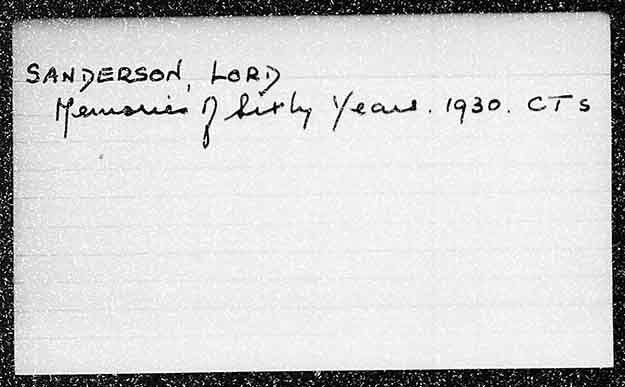 SANDERSON, LORD
Memories of Sixty Years. 1930. CTS